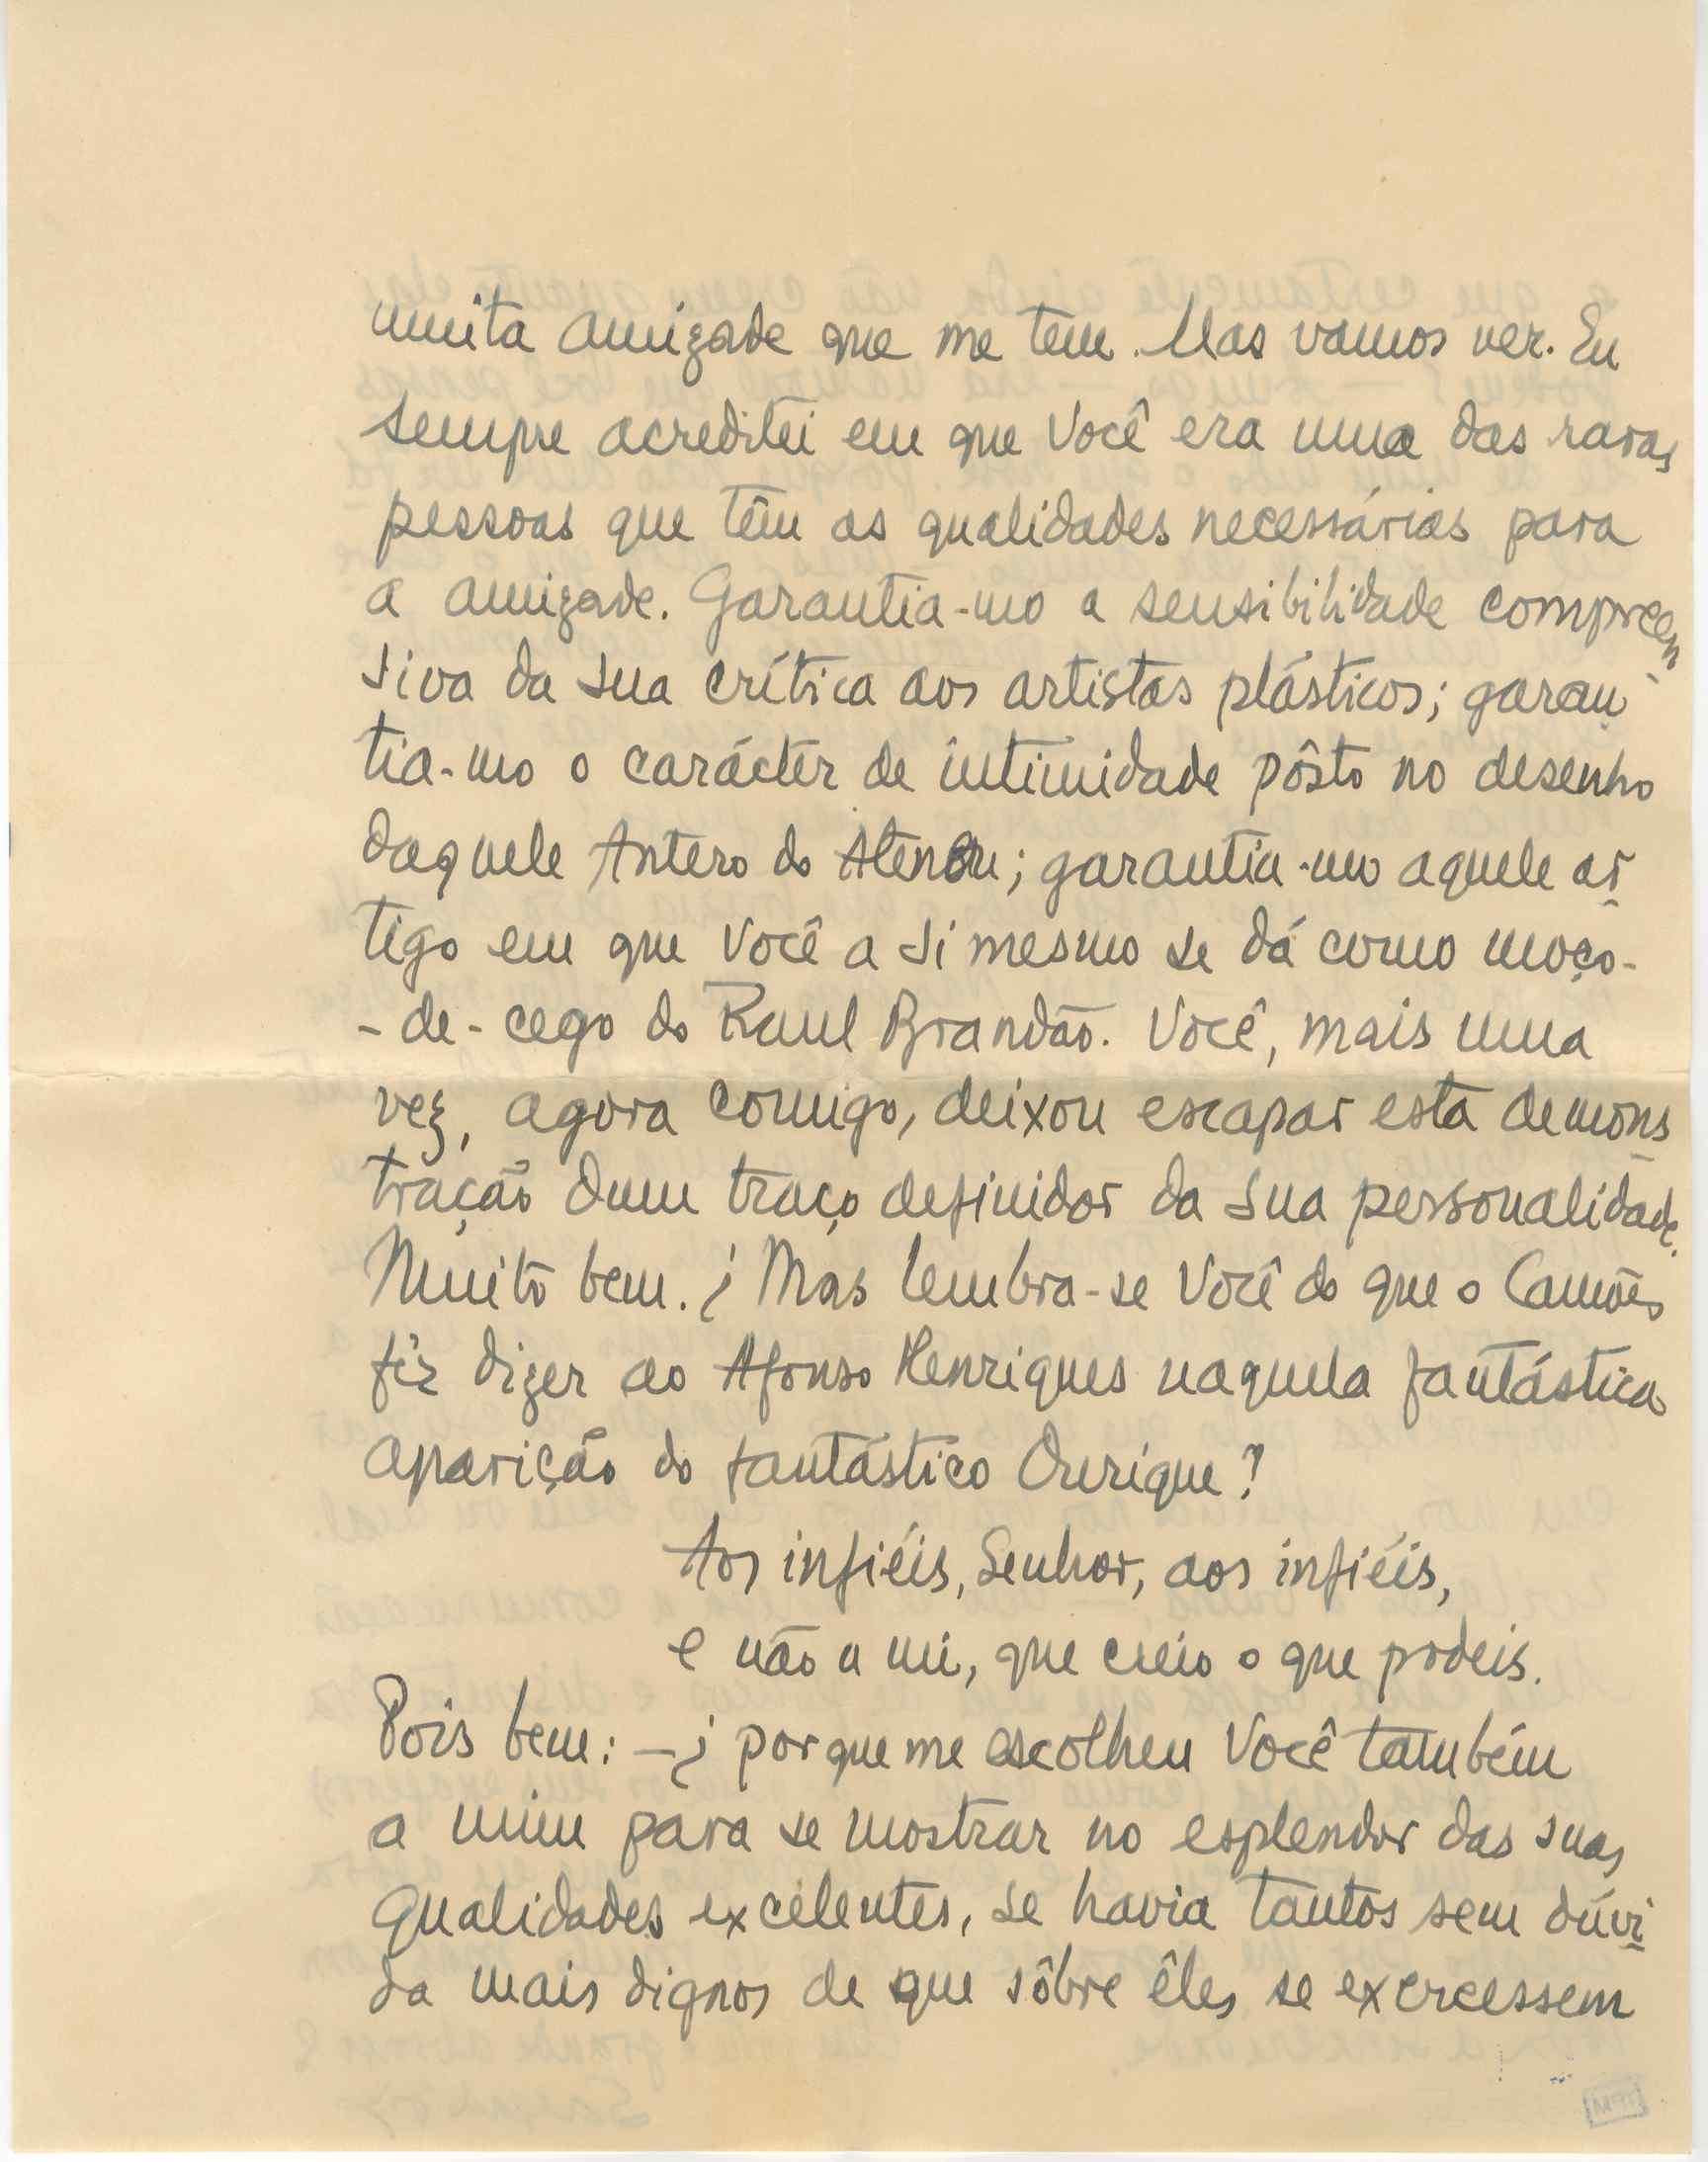 muita amizade que me tem. Mas vamos ver. Eu
sempre acreditei em que Você era uma das raras
pessoas que têm as qualidades necessárias para
a amizade. Garantia-mo a sensibilidade compreen
siva da sua crítica aos artistas plásticos; garan
tia-mo o carácter de intimidade pôsto no desenho
daquele Antero do Atenou; garantia-mo aquele ar
tigo em que Você a si mesmo se dá como moço-
-de-cego do Raul Brandão. Você, mais uma
vez, agora comigo, deixou escapar esta demons
tração dum traço definidor da sua personalidade.
Muito bem. ¿Mas lembra-se Você do que o Camões
fêz dizer ao Afonso Henriques naquela fantástica
aparição do fantástico Ourique?
Aos infiéis, Senhor, aos infiéis,
e não a mi, que creio o que podeis.
Pois bem: — ¿porque me escolheu Você também
a mim para se mostrar no esplendor das suas
qualidades excelentes, se havia tantos sem dúvi
da mais dignos de que sôbre êles se exercessem